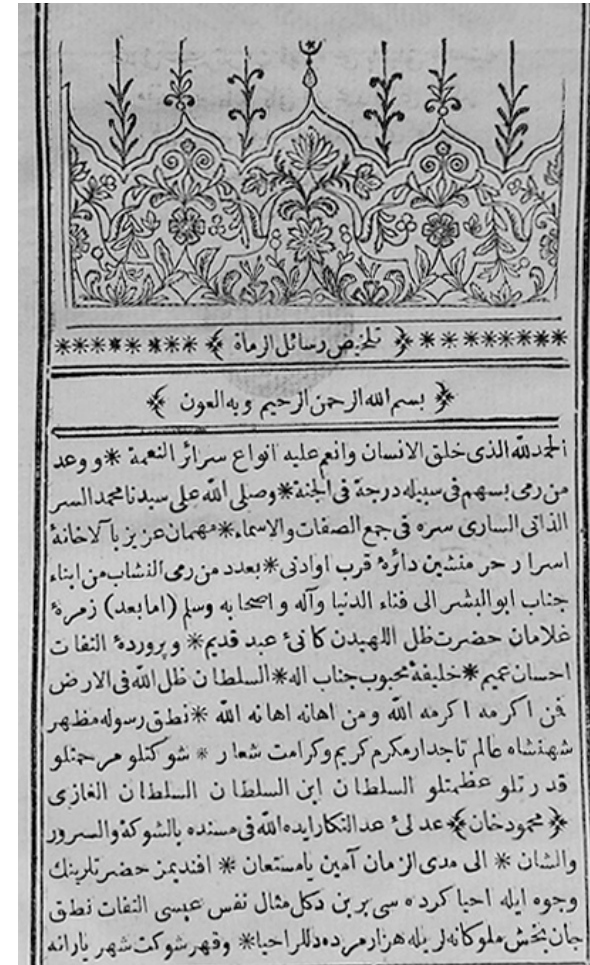 تلخيص رسائل الرماة
بسم الله الرحمن الرحيم وبه العون
الحمد لله الذى خلق الانسان وانعم عليه انواع سرائر النعمة * و وعد
من رمى بسهم فى سبيله درجة فى الجنة * وصلى الله على سيدنا محمد السر
الذاتى السارى سره فى جمع الصفات والاسماء * مهمان عزيز بالاخانۀ
اسرار حر منشين دائرۀ قرب اوادنى * بعدد من رمى النشاب من ابناء
جناب ابو البشر الى فناء الدنيا وآله واصحابه وسلم (امابعد) زمرۀ
غلامان حضرت ظل اللهيدن كانئ عبد قديم * و پروردۀ التفات
احسان عميم * خليفۀ محبوب جناب اله * السلطان ظل الله فى الارض
فمن اكرمه اكرمه الله ومن اهانه اهانه الله * نطق رسوله مظهر
شهنشاه عالم تاجدار مكرم كريم و كرامت شعار * شوكتلو مرحمتلو
قدرتلو عظمتلو السلطان ابن السلطان السلطان الغازى
﴿ محمود خان ﴾ عدلئ عد النكار ايده الله فى مسنده بالشوكة والسرور
والشان * الى مدى الزمان آمين يا مستعان * افنديمز حضرتلرينك
وجوه ايله احيا كرده سى برين دكل مثال نفس عيسى التفات نطق
جان بخش ملوكانه لريله هزار مرده دللر احيا * وقهر شوكت شهريارانه